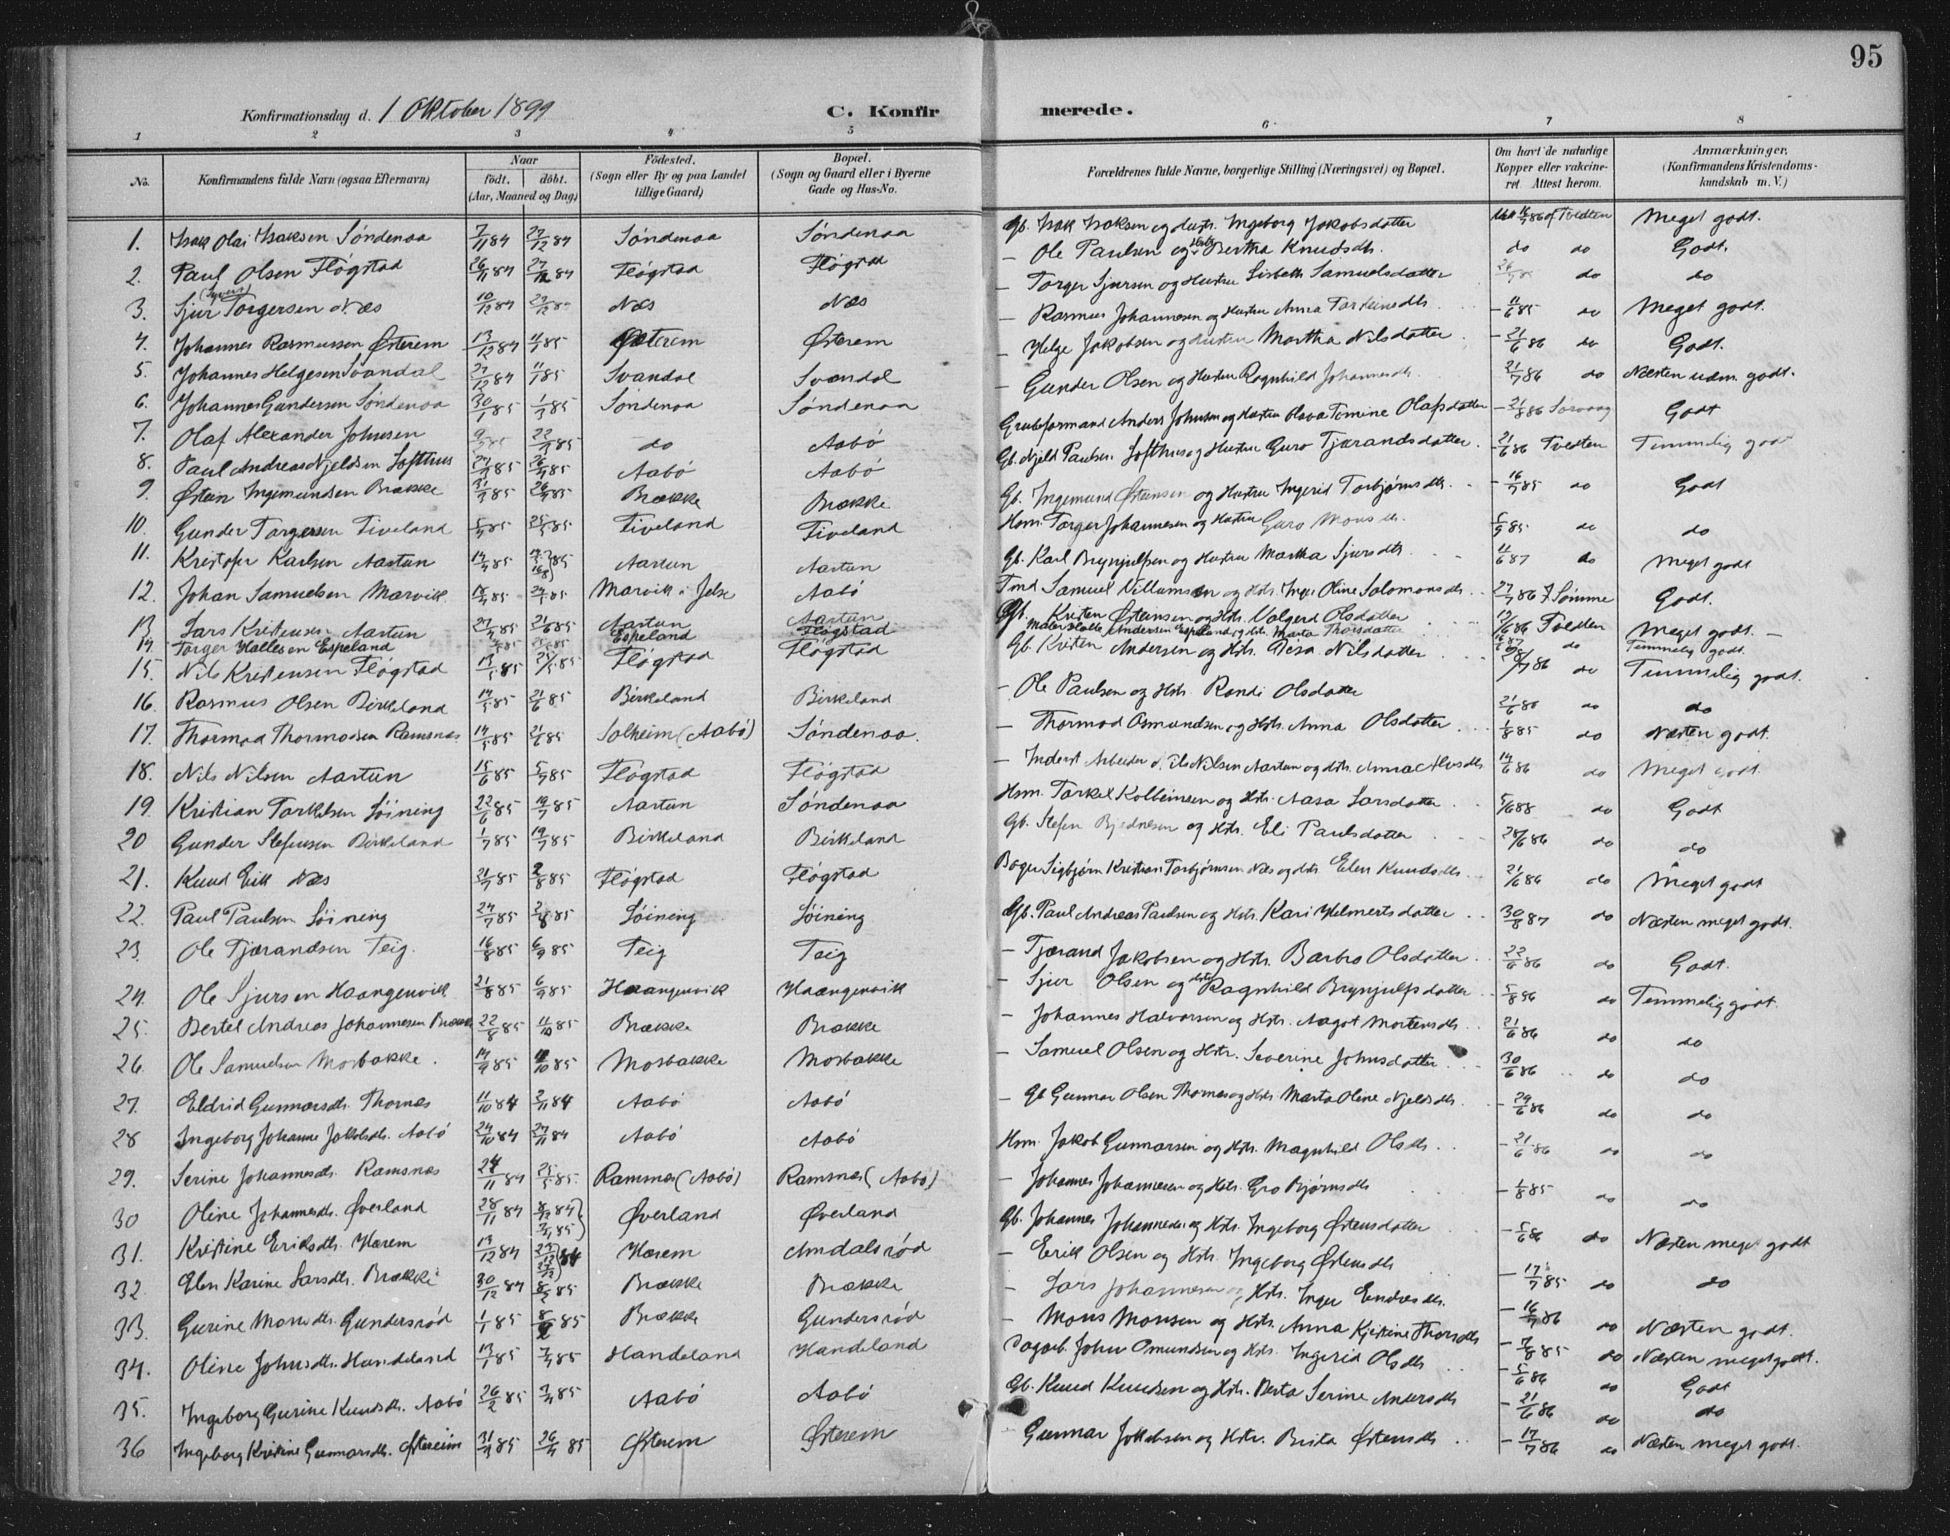 95
Konfirmationsdag d. 1 Oktober 1899 C. Konfirmerede.
1 2 3 4 5 6 7 8
No. Konfirmandens fulde Navn (ogsaa Efternavn) Naar født. døbt. (Aar, Maaned og Dag) Fødested. (Sogn eller By og paa Landet tillige Gaard) Bopæl. (Sogn og Gaard eller i Byerne Gade og Hus-No. Forældrenes fulde Navne, borgerlige Stilling (Næringsvei) og Bopæl. Om havt de naturlige Kopper eller vakcineret. Attest herom. Anmærkninger. (Konfirmandens Kristendomskundskab m. V.)
1. Isak Olai Isaksen Søndenaa 7/11 84 27/12 84 Søndenaa Søndenaa Gb. Isak Isaksen og Hustr. Ingeborg Jakobsdatter Tvedten Meget godt.
2. Paul Olsen Fløgstad 26/11 84 27/12 84 Fløgstad Fløgstad – Ole Paulsen og Hstr. Bertha Knudsdtr. do do Godt.
3. Sjur (Syvert) Torgersen Næs 10/12 84 Næs Næs – Torger Sjursen og Hustru Lisbeth Samuelsdatter do do
4. Johannes Rasmussen Østerem 13/12 84 Østerem Østerem – Rasmus Johannesen og Hustru Anna Torsteinsdtr. 11/6 85 do Meget godt.
5. Johannes Helgesen Svandal 27/12 84 Svandal Svandal – Helge Jakobsen og Hustru Martha Nilsdatter 21/6 86 do Godt.
6. Johannes Gundersen Søndenaa 30/1 85 Søndenaa Søndenaa – Gunder Olsen og Hustru Ragnhild Johannesdtr. 21/7 86 do Næsten udm. godt.
7. Olaf Alexander Johnsen do Aabø Grubeformand Anders Johnsen og Hustru Olava Tomine Olafsdatter 21/8 86 Godt
8. Paul Andreas Njeldsen Lofthus Aabø Aabø Gb. Njeld Paulsen Lofthus og Hustru Guro Tjærandsdatter 21/6 86 Tvedten Temmelig godt
9. Østen Ingemundsen Brække Brække Brække Gb. Ingemund Østensen og Hustru Ingerid Torbjørnsdtr. do Godt
10. Gunder Torgersen Tiveland Tiveland Tiveland Hsm. Torger Johannesen og Hustru Guro Monsdtr. do do
11. Kristofer Karlsen Aartun Aartun Aartun Gb. Karl Brynjulfsen og Hustru Martha Sjursdtr. 11/6 87 do Meget godt
12. Johan Samuelsen Marvik Marvik i Jelse Aabø Samuel Villumsen og Hstr. Inger Oline Salomonsdtr. 27/7 86 Godt.
13 Lars Kristensen Aartun Aartun Aartun Gb. Kristen Østensen og Hstr. Valgerd Olsdatter Tvedten Meget godt. –
14 Torger Hallesen Espeland Espeland Fløgstad Maler Halle Andersen Espeland og Hstr. Marta Thorsdatter do Temmelig godt.
15. Nils Kristensen Fløgstad Fløgstad Fløgstad Gb. Kristen Andersen og Hstr. Nilsdatter do Temmelig godt.
16. Rasmus Olsen Birkeland 14/5 85 21/6 85 Birkeland Birkeland – Ole Paulsen og Hstr. Randi Olsdatter do do
17. Thormod Thormodsen Ramsnæs 14/5 85 21/6 85 Solheim (Aabø) Søndenaa. – Thormod Osmundsen og Hstr. Anna Olsdatter 1/8 85 do Næsten godt.
18. Nils Nilsen Aartun 15/6 85 5/7 85 Fløgstad Fløgstad – Inderst Arbeider Nils Nilsen Aartun og Hstr. Anna 14/6 86 do Meget godt.
19. Kristian Torkelsen Løining 22/6 85 19/7 85 Aartun Søndenaa Hsm. Torkel Kolbeinsen og Hstr. Aasa Larsdatter 5/6 88 do Godt
20 Gunder Stefensen Birkeland 1/7 85 19/7 85 Birkeland Birkeland Gb. Stefen Bjednesen og Hstr. Eli Paulsdatter do do
21. Knud Eik Næs 21/7 85 2/8 85 Fløgstad Fløgstad Bager Sigbjørn Kristian Torbjørnsen Næs og Hstr. Elen Knudsdtr. 21/6 86 do Meget godt
22. Paul Paulsen Løining 24/7 85 2/8 85 Løining Løining Gb. Paul Andreas Paulsen og Hstr. Kari Helmertsdatter 30/8 87 do Næsten meget godt.
23. Ole Tjærandsen Teig. 16/8 85 6/9 85 Teig Teig – Tjærand Jakobsen og Hstr. Barbro Olsdatter 22/6 86 do Godt.
24. Ole Sjursen Haangenvik 21/8 85 6/9 85 Haangenvik Haangenvik – Sjur Olsen og Hstr. Ragnhild Brynjulfsdatter do Temmelig godt.
25. Bertel Andreas Johannesen Brække 22/8 85 11/10 85 Brække Brække – Johannes Halvorsen og Hstr. Aagot Mortensdtr. 21/6 86 do do
26. Ole Samuelsen Mosbakke. 14/9 85 11/10 85 Mosbakke Mosbakke – Samuel Olsen og Hstr. Severine Johnsdatter 30/6 86 do do
27. Eldrid Gunnarsdtr. Thornes 11/10 84 2/11 84 Aabø Aabø – Gb Gunnar Olsen Thornes og Hstr. Marta Oline Njeldsdtr. 29/6 86 do do
28 Ingeborg Johanne Jakobsdtr. Aabø 24/10 84 27/11 84 Aabø Aabø Hsm. Jakob Gunnarsen og Hstr. Magnhild Olsdtr. 21/6 86 do do
29. Serine Johannesdtr. Ramsnæs 24/11 84 25/5 85 Ramsnæs (Aabø) Ramsnæs (Aabø) – Johannes Johannesen og Hstr. Gro Bjørnsdtr. 1/8 85 do do
30 Oline Johannesdtr. Øverland 28/11 84 Øverland Øverland Gb. Johannes og Hstr. Ingeborg Østensdatter do Næsten meget godt
31. Kristine Eriksdtr. Hærem 13/12 84 Hærem Amdalsrød – Erik Olsen og Hstr. Ingeborg Østensdtr. 17/7 85 do do
32. Elen Karine Larsdtr. Brække 30/12 84 Brække Brække – Lars Johannesen og Hstr. Inger Endresdtr. 16/7 86 do Næsten godt.
33. Gurine Monsdtr. Gundersrød 1/1 85 Brække Gundersrød – Mons Monsen og Hstr. Anna Kjerstine Thorsdtr. 7/8 85 do Næsten meget godt.
34. Oline Johnsdtr. Handeland 13/1 85 Handeland Handeland Dagarb. John Omundsen og Hstr. Ingerid Olsdtr. 5/6 86 do Godt
35. Ingeborg Gurine Knudsdtr. Aabø 26/2 85 Aabø Aabø Gb. Knud Knudsen og Hstr. Berta Serine Andersdtr. 21/6 86 do do
36 Ingeborg Kristine Gunnarsdtr. Østereim 85 26/4 85 Østerem Østerem – Gunnar Jakobsen og Hstr. Brita Østensdtr. 17/7 86 do Næsten meget godt.